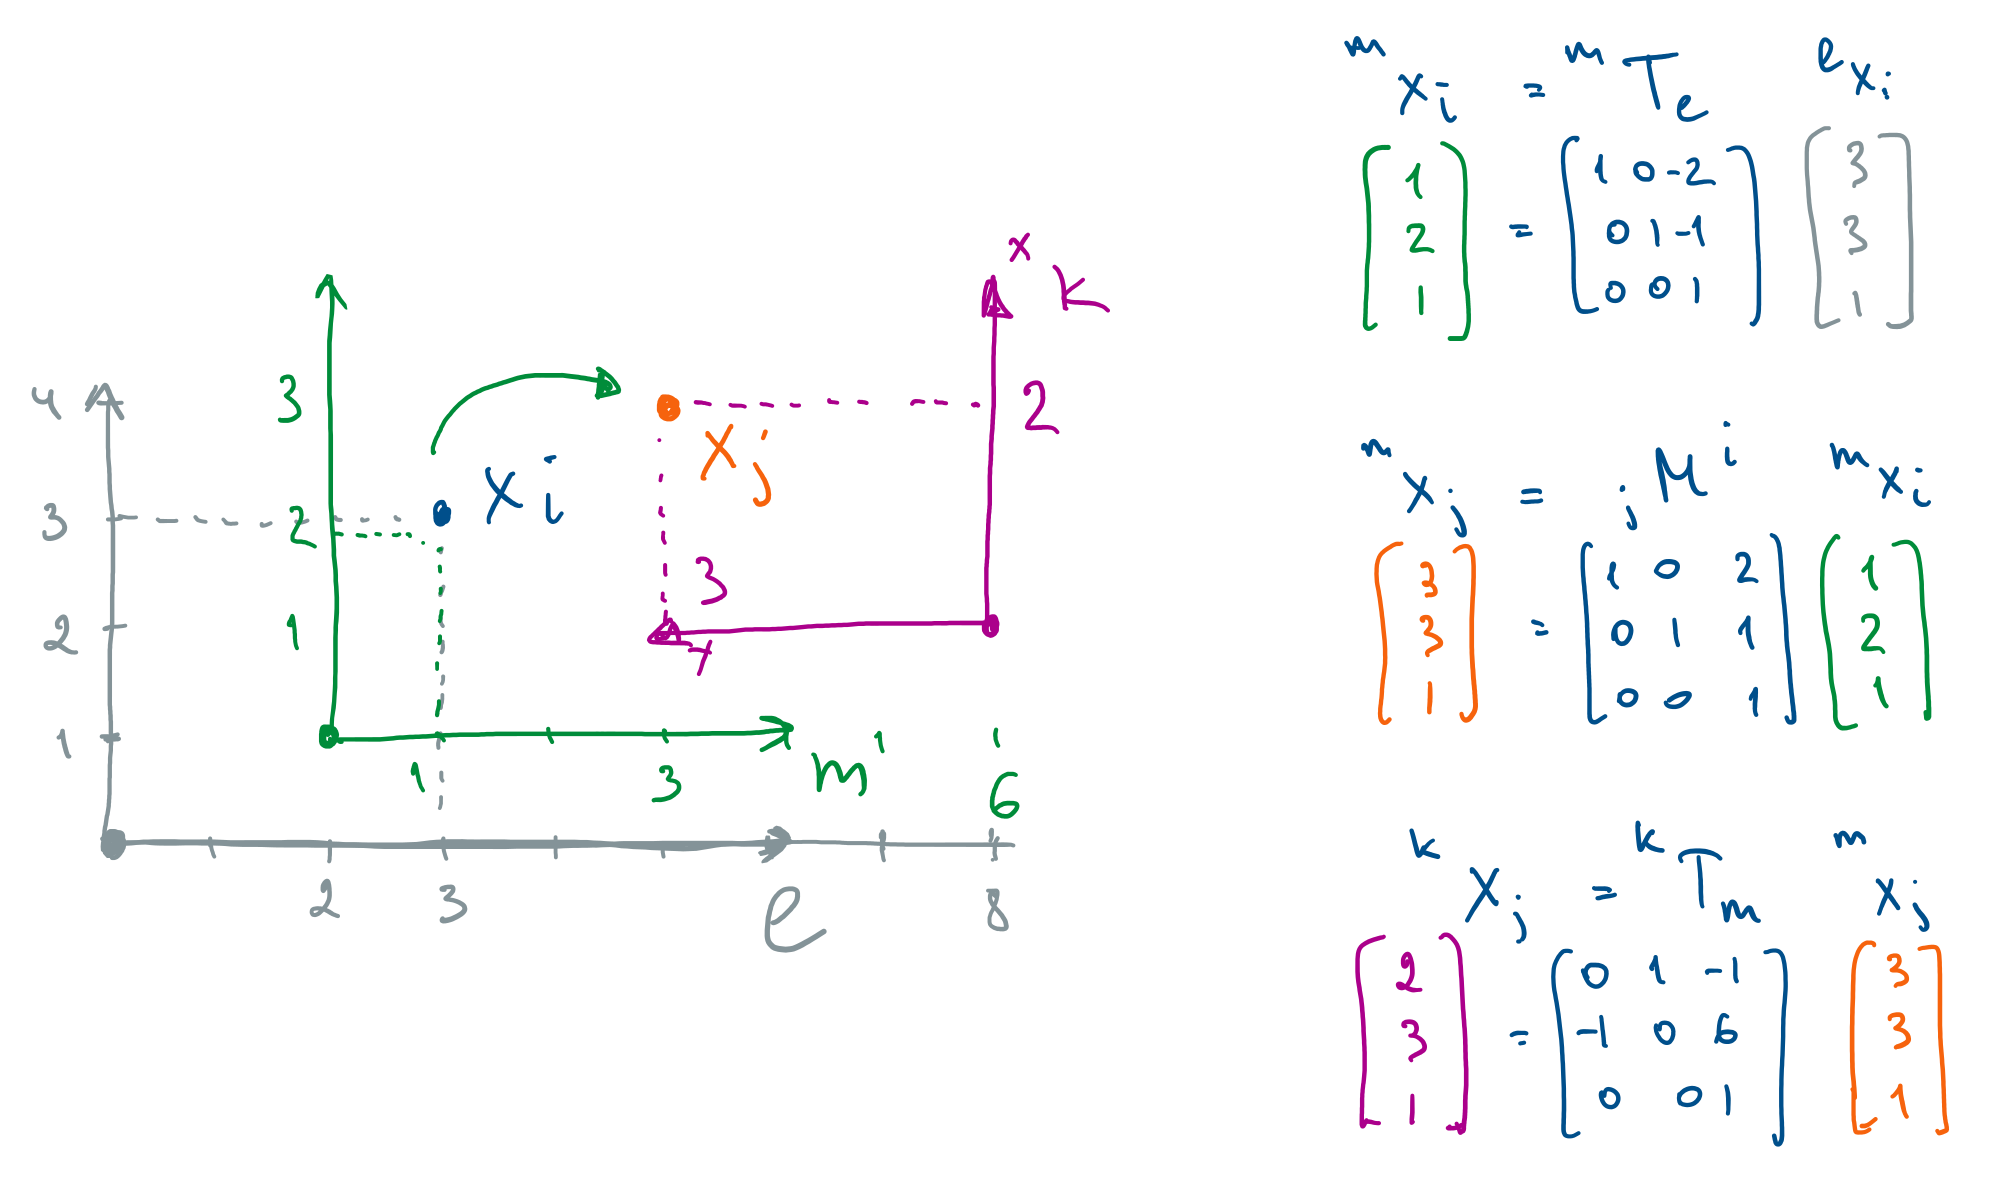 4
3
2
1
2 3 e 8
3
2
1
1 3 m 6
x_i
x_j
x k
2
3
y
^m x_i = ^m T_e ^e x_i
[1 2 1] = [1 0 -2; 0 1 -1; 0 0 1] [3 3 1]
^m x_j = _j M^i ^m x_i
[3 3 1] = [1 0 2; 0 1 1; 0 0 1] [1 2 1]
^k x_j = ^k T_m ^m x_j
[2 3 1] = [0 1 -1; -1 0 6; 0 0 1] [3 3 1]